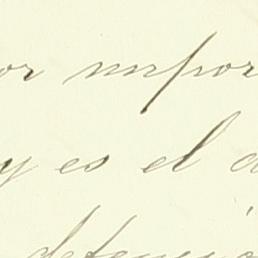 or impor
y es el a
detenció